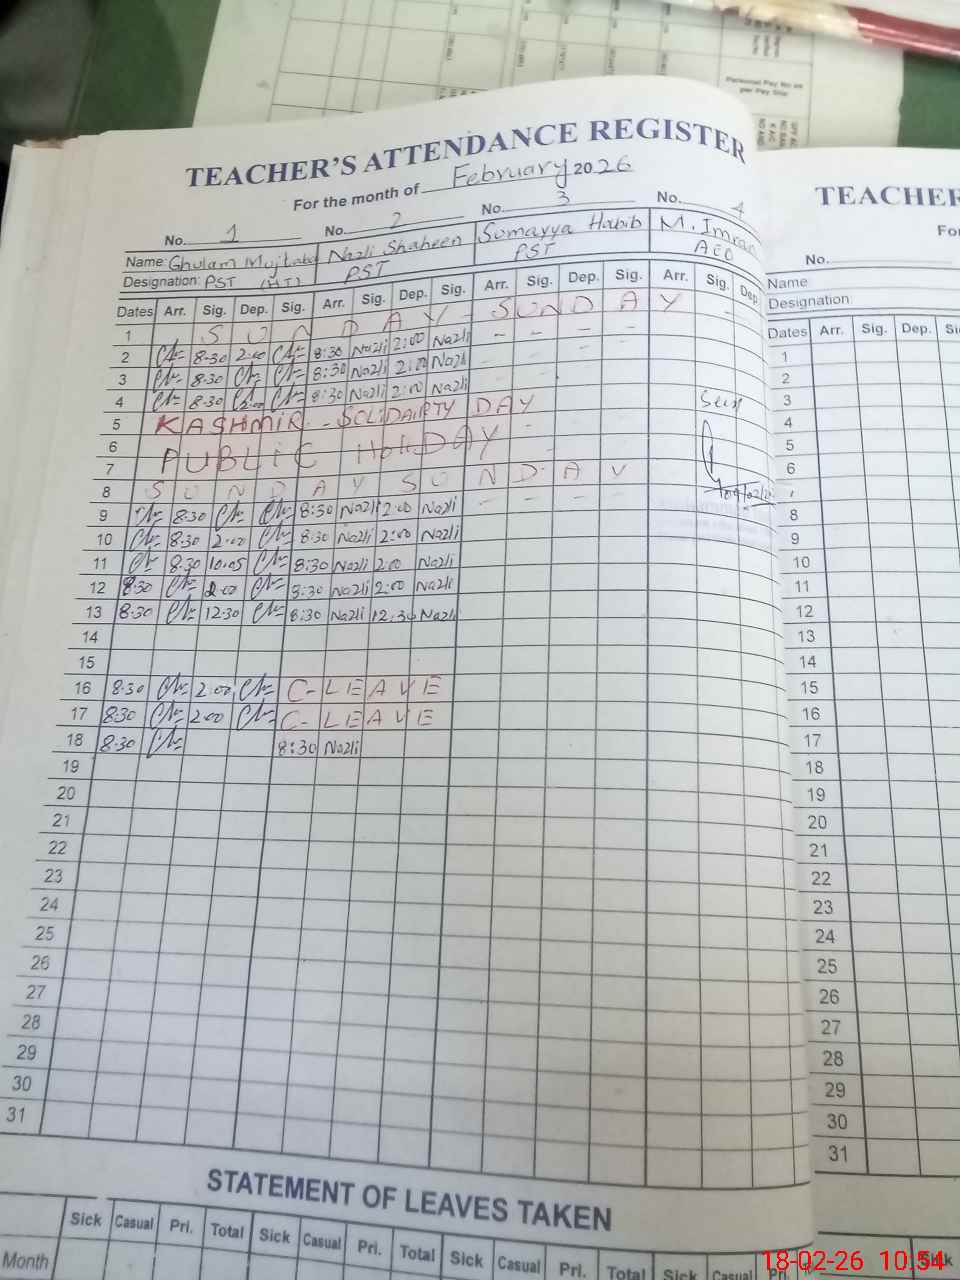 Personal Pay No as
per Pay Slip
TEACHER'S ATTENDANCE REGISTER
For the month of February 2026
No. 1 No. 2 No. 3 No. 4
Name: Ghulam Mujtaba Nazli Shaheen Sumayya Habib M. Imran
Designation: PST (HT) PST PST AEO
Dates Arr. Sig. Dep. Sig. Arr. Sig. Dep. Sig. Arr. Sig. Dep. Sig. Arr. Sig. Dep.
1 S U N D A Y - S U N D A Y -
2 8-30 2-00 8:30 Nazli 2:00 Nazli - - - -
3 8-30 8:30 Nazli 2:00 Nazli
4 8-30 2:00 8:30 Nazli 2:00 Nazli
5 KASHMIR - SOLIDAIRTY DAY
6 PUBLIC HOLIDAY
7
8 S U N D A Y S U N D A Y
9 8-30 8:30 Nazli 2:00 Nazli - - - -
10 8-30 2-00 8:30 Nazli 2:00 Nazli
11 8-30 10.05 8:30 Nazli 2:00 Nazli
12 8-30 2-00 8:30 Nazli 2:00 Nazli
13 8-30 12-30 8:30 Nazli 12:30 Nazli
14
15
16 8-30 2-00 C-LEAVE
17 8-30 2-00 C-LEAVE
18 8-30 8:30 Nazli
19
20
21
22
23
24
25
26
27
28
29
30
31
Seen
STATEMENT OF LEAVES TAKEN
Sick Casual Pri. Total Sick Casual Pri. Total Sick Casual Pri. Total Sick Casual Pri.
Month
TEACHER
No.
Name
Designation:
Dates Arr. Sig. Dep. S
1
2
3
4
5
6
7
8
9
10
11
12
13
14
15
16
17
18
19
20
21
22
23
24
25
26
27
28
29
30
31
Sick
18-02-26 10:54